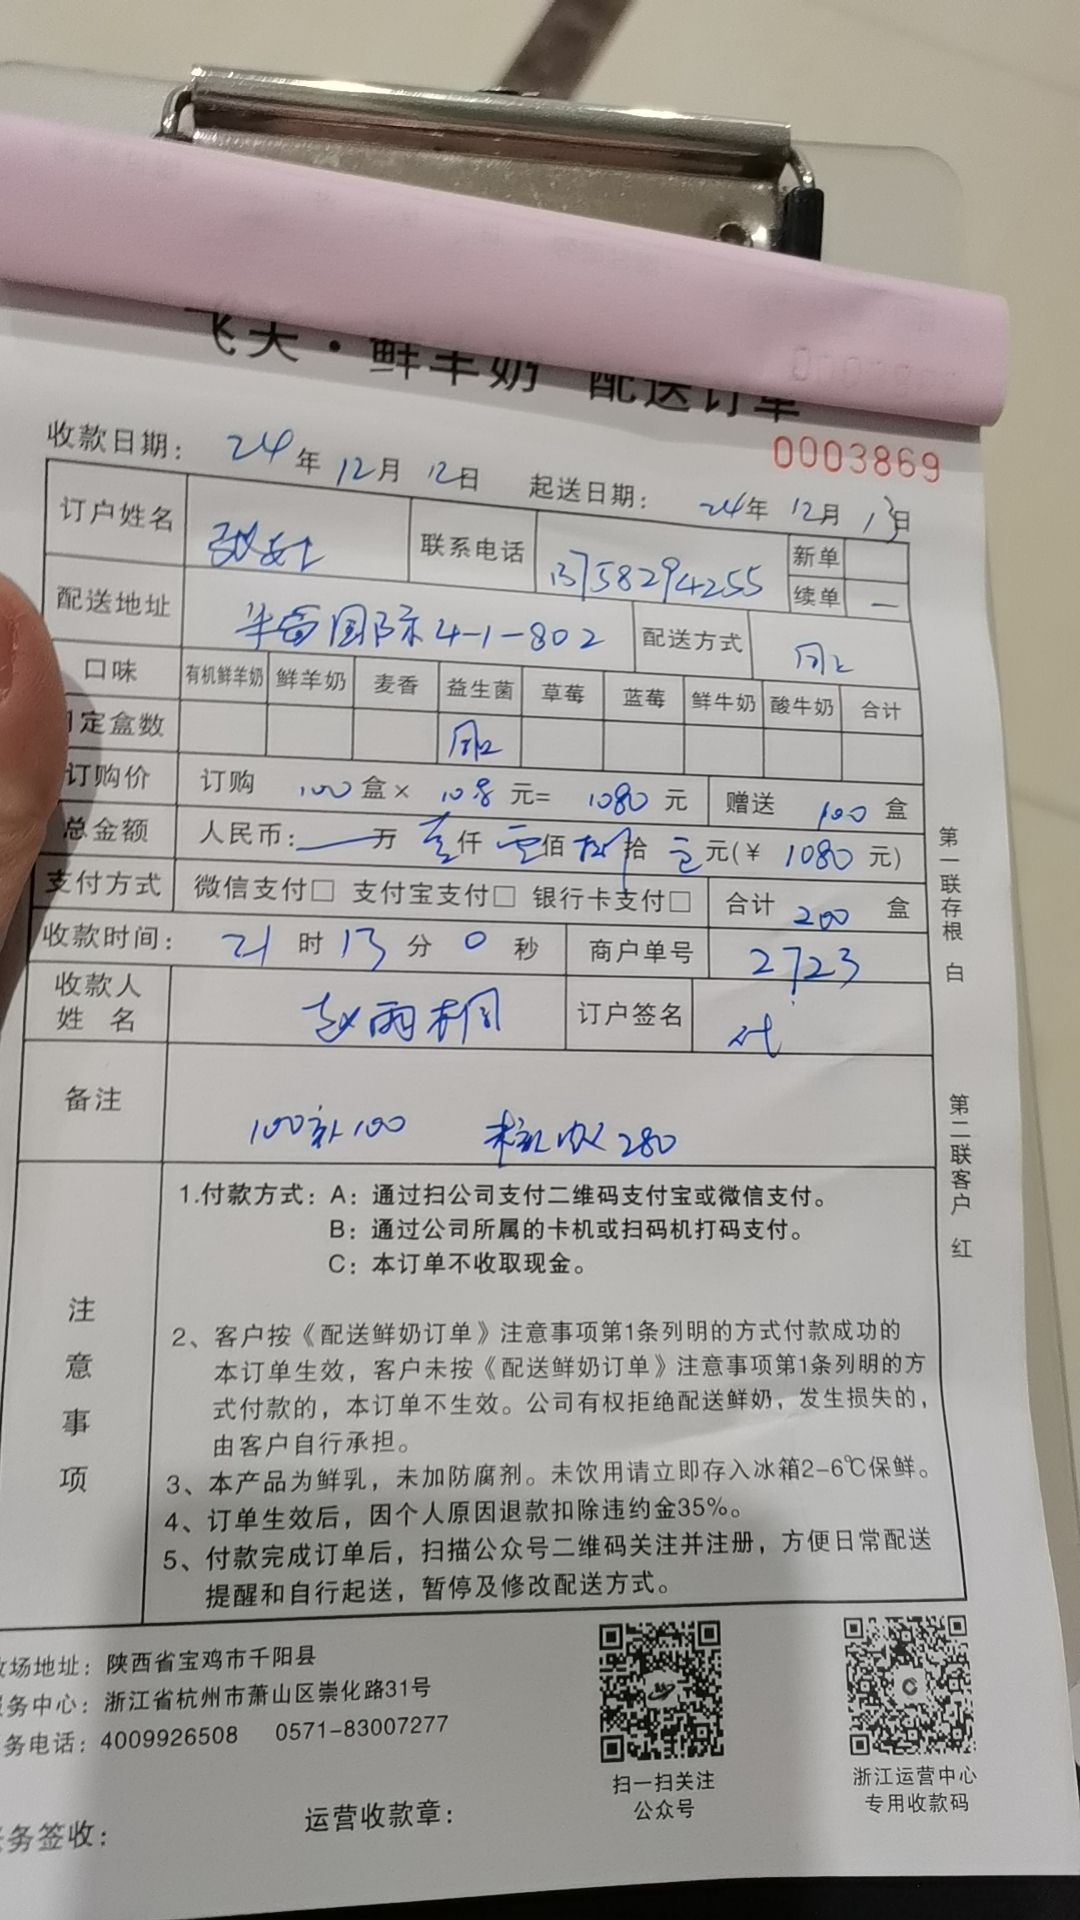 飞天·鲜羊奶 配送订单
0003869
收款日期： 24年 12月 12日 起送日期： 24年 12月 13日
订户姓名 联系电话 13758294255 新单
续单 —
配送地址 国际4-1-802 配送方式
口味 有机鲜羊奶 鲜羊奶 麦香 益生菌 草莓 蓝莓 鲜牛奶 酸牛奶 合计
定盒数
订购价 订购 100 盒× 10.8 元= 1080 元 赠送 100 盒
总金额 人民币： 万 壹仟 零佰 捌拾 元(¥ 1080 元)
支付方式 微信支付□ 支付宝支付□ 银行卡支付□ 合计 200 盒
收款时间： 21 时 13 分 0 秒 商户单号 2723
收款人
姓 名 赵雨桐 订户签名 代
备注 100补100 280
注意事项
1.付款方式：A：通过扫公司支付二维码支付宝或微信支付。
B：通过公司所属的卡机或扫码机打码支付。
C：本订单不收取现金。
2、客户按《配送鲜奶订单》注意事项第1条列明的方式付款成功的
本订单生效，客户未按《配送鲜奶订单》注意事项第1条列明的方
式付款的，本订单不生效。公司有权拒绝配送鲜奶，发生损失的，
由客户自行承担。
3、本产品为鲜乳，未加防腐剂。未饮用请立即存入冰箱2-6℃保鲜。
4、订单生效后，因个人原因退款扣除违约金35%。
5、付款完成订单后，扫描公众号二维码关注并注册，方便日常配送
提醒和自行起送，暂停及修改配送方式。
第一联存根 白
第二联客户 红
牧场地址：陕西省宝鸡市千阳县
服务中心：浙江省杭州市萧山区崇化路31号
务电话：4009926508 0571-83007277
扫一扫关注
公众号
浙江运营中心
专用收款码
务签收： 运营收款章：